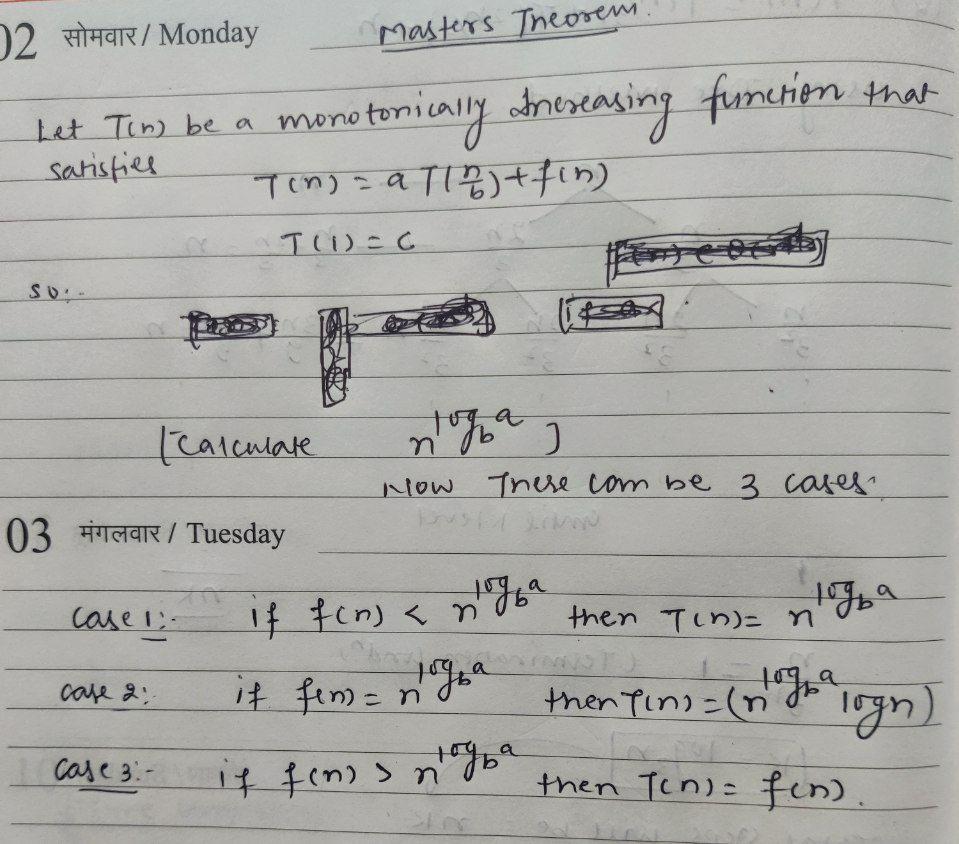 02 सोमवार / Monday
Masters Theorem.
Let T(n) be a monotonically Increasing function that
satisfies
T(n) = a T(n/b) + f(n)
T(1) = c
so:-
[Calculate n^log_b a]
Now These can be 3 cases.
03 मंगलवार / Tuesday
Case 1:- if f(n) < n^log_b a then T(n) = n^log_b a
Case 2:- if f(n) = n^log_b a then T(n) = (n^log_b a logn)
Case 3:- if f(n) > n^log_b a then T(n) = f(n).